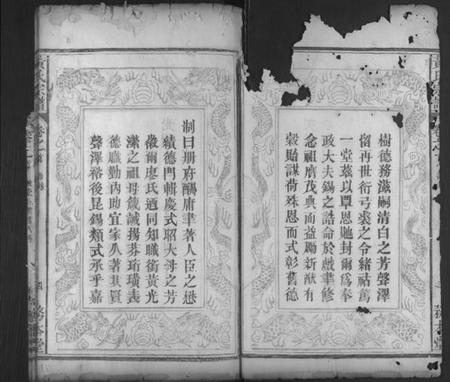 樹德務滋嗣清白之芳聲澤
留再世衍弓裘之令緒祜篤
一堂茲以覃恩貤封爾爲奉
政大夫錫之誥命於戲聿修
念祖膺茂典而益勵新猷有
穀貽謀荷殊恩而式彰舊德
制曰冊府酬庸聿著人臣之懋
績德門輯慶式昭大母之芳
徽爾廖氏迺同知職銜黃光
之祖母箴誡揚芬珩璜表
德職勤內助宜家久著其賢
聲澤裕後昆錫類式承乎嘉